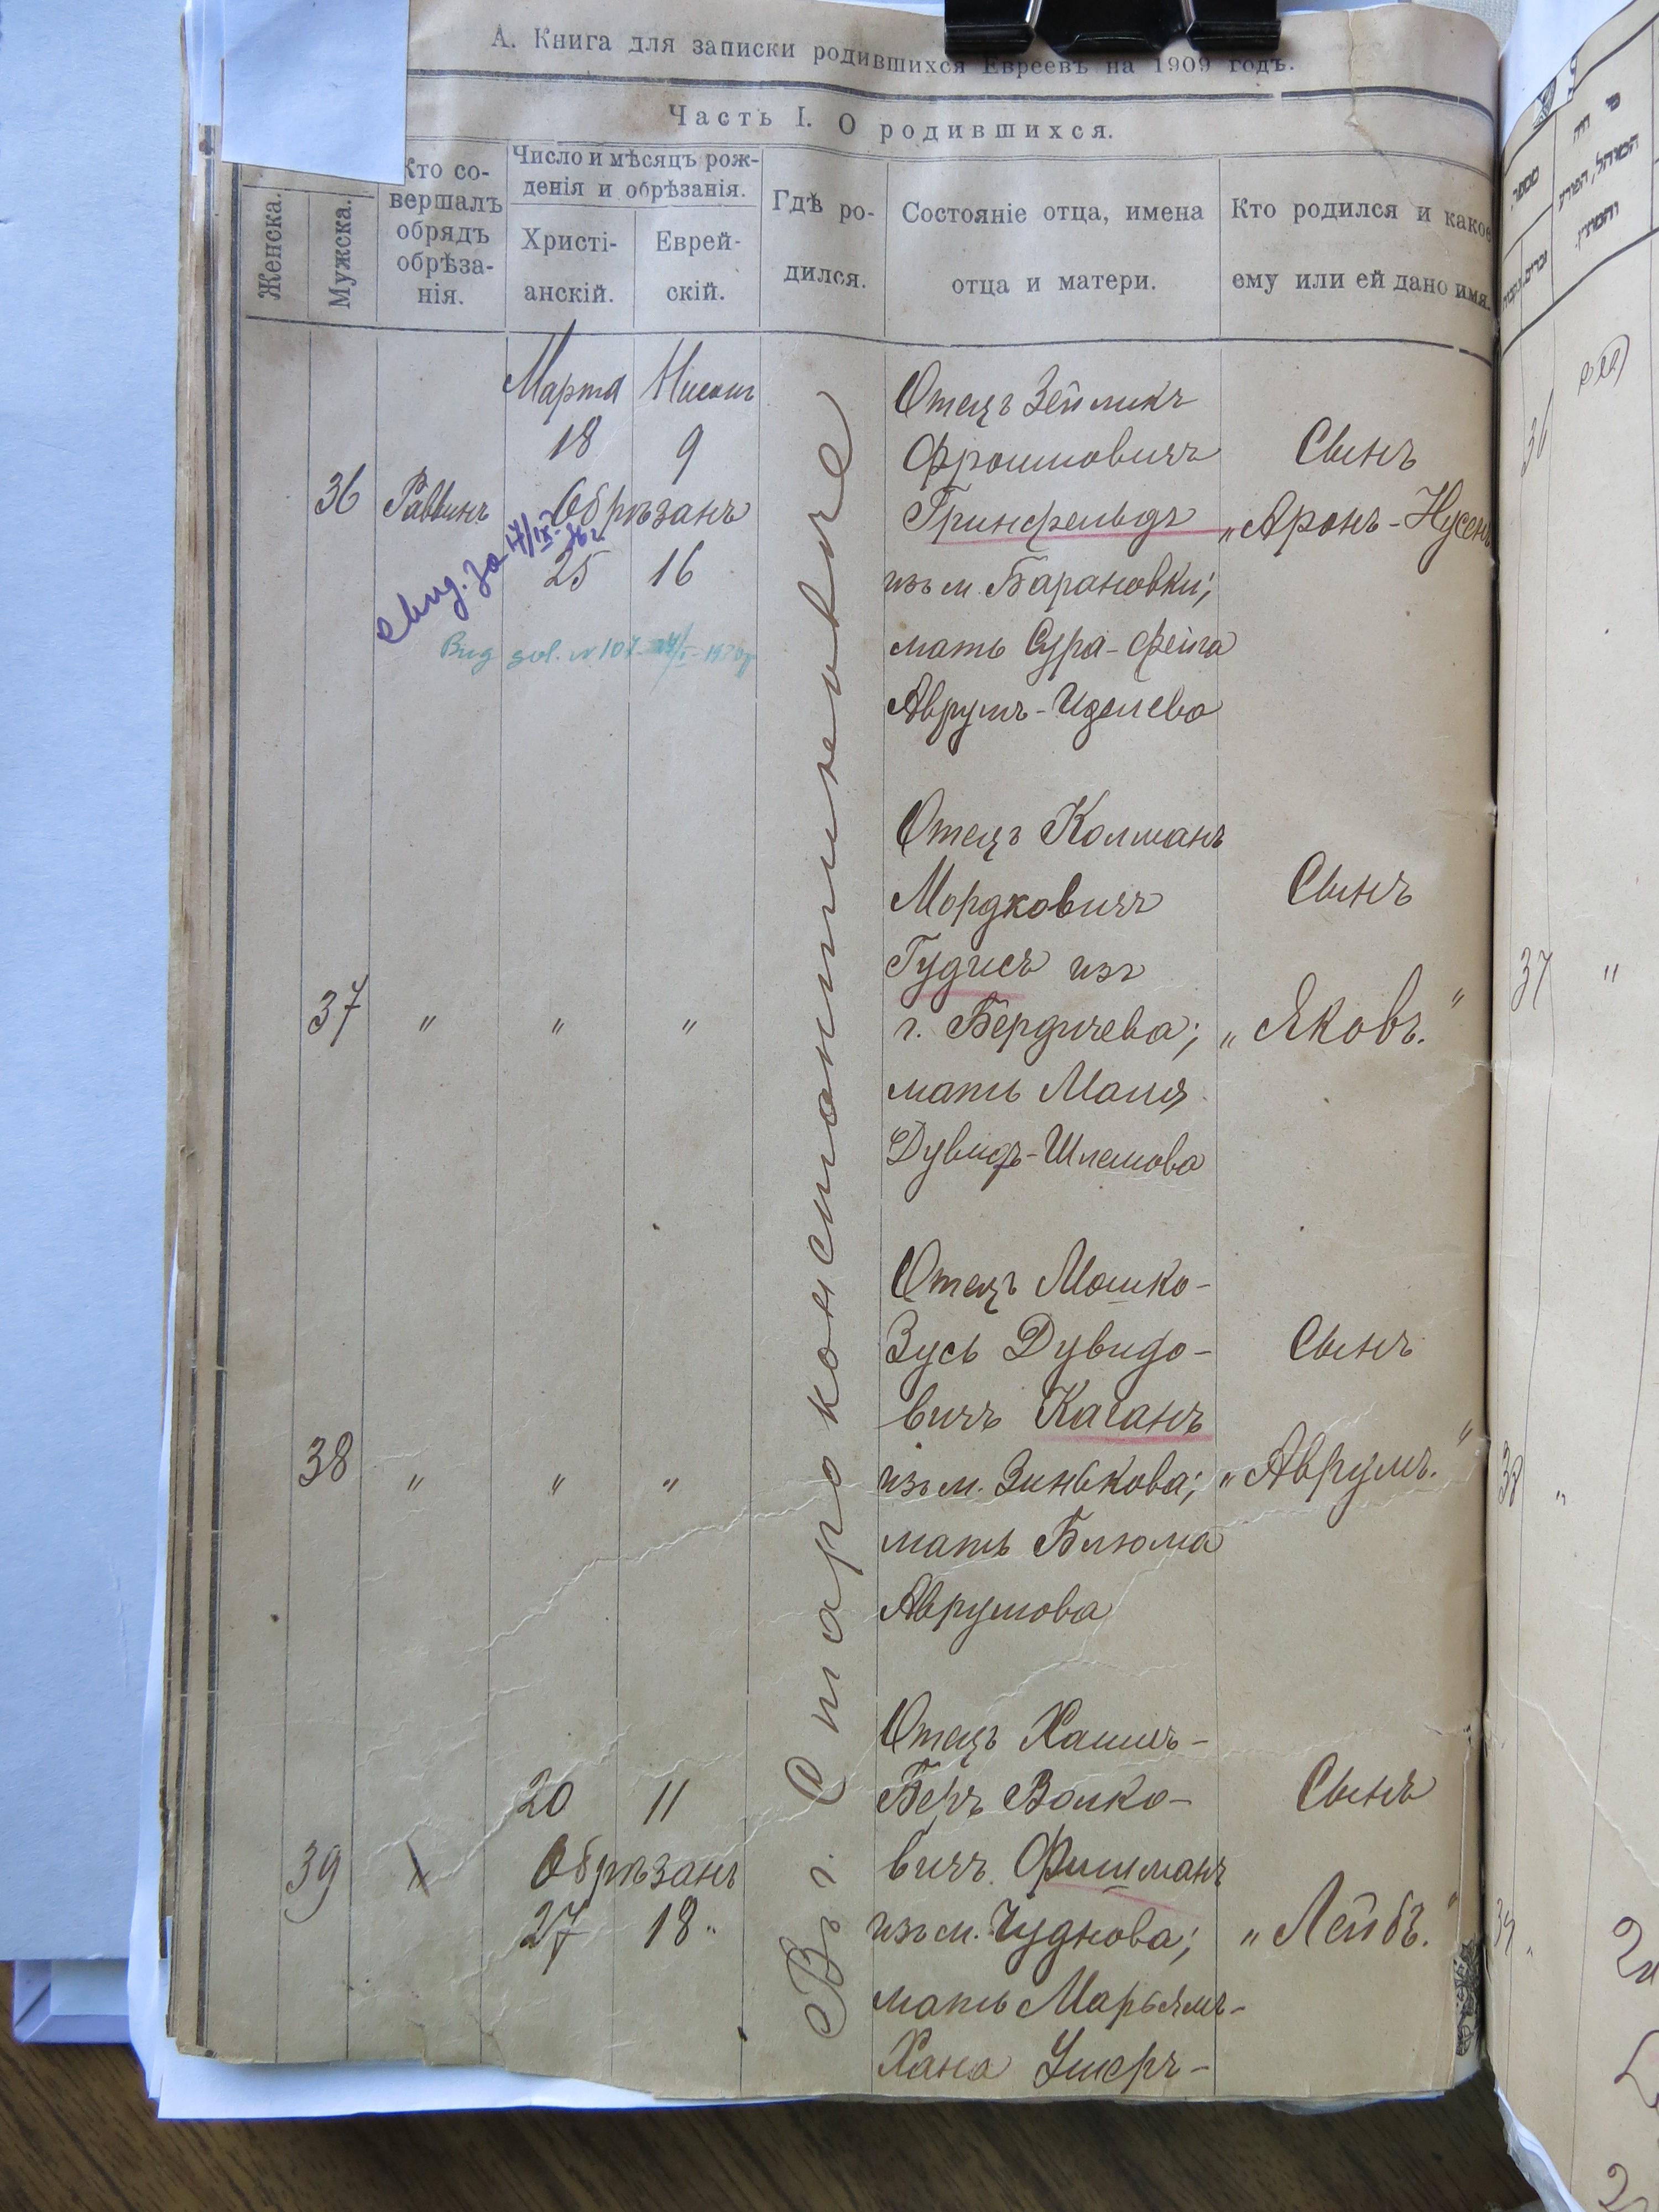 А. Книга для записки родившихся Евреевъ на 1909 годъ.
Часть I. О родившихся.
Женска.
Мужска.
Кто со-
вершалъ
обрядъ
обрѣза-
нія.
Число и мѣсяцъ рож-
денія и обрѣзанія.
Христі-
анскій.
Еврей-
скій.
Гдѣ ро-
дился.
Состояніе отца, имена
отца и матери.
Кто родился и какое
ему или ей дано имя.
36
Раввинъ
Марта Нисонъ
18 9
Обрѣзанъ
25 16
свид. за 17/IX
Вид
Въ г. Староконстантиновѣ
Отецъ Зейликъ
Фроимовичъ
Гринфельдъ
изъ м. Барановки;
мать Сура-Фейга
Аврумъ-Иделева
Сынъ
„Аронъ-Нусенъ
37 " " "
Отецъ Колманъ
Мордковичъ
Гудисъ изъ
г. Бердичева;
мать Маля
Дувидъ-Шлемова
Сынъ
„Яковъ."
38 " " "
Отецъ Мошко-
Зусь Дувидо-
вичъ Каганъ
изъ м. Зинькова;
мать Блюма
Аврумова
Сынъ
„Аврумъ."
39
20 11
Обрѣзанъ
27 18
Отецъ Хаимъ-
Беръ Волко-
вичъ Фишманъ
изъ м. Чуднова;
мать Марьямъ-
Хана Ушеръ-
Сынъ
„Лейбъ."
36
37 "
38 "
39